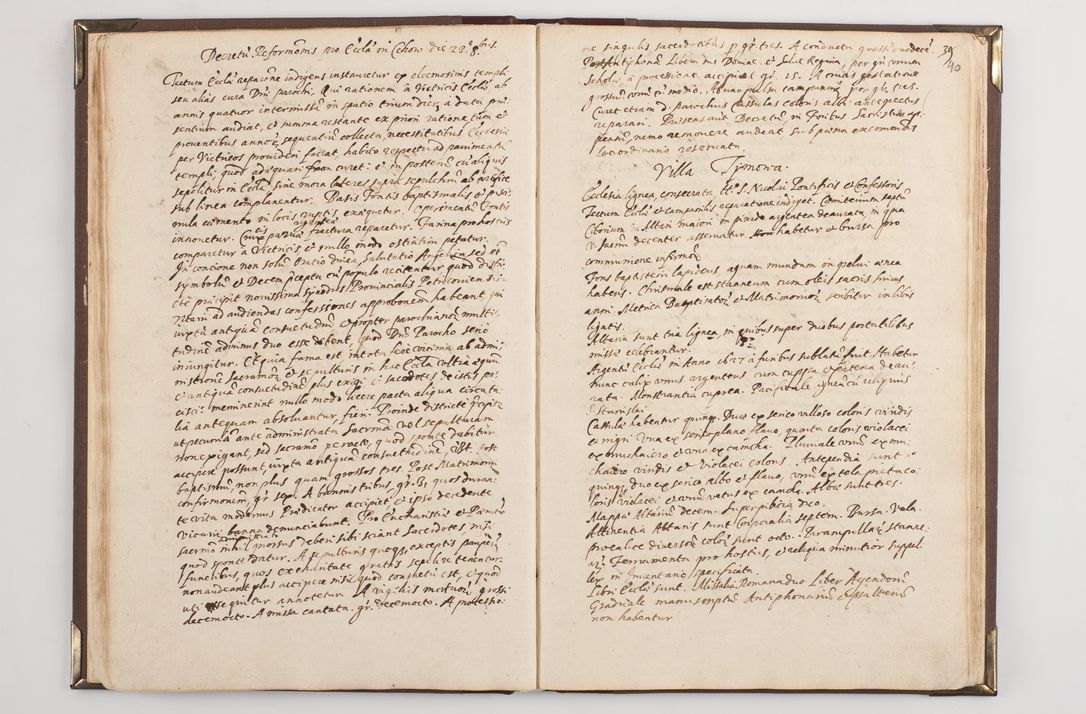 Decretũ Reformõnis pro Eccla in Cchow die 28. 8bris.
Tectum Ecclae reparõne indigens instauretur ex eleemosinis templi
seu alias cura Dni parochi, Qui rationem à Victricis Ecclae ab
annis quatuor intermissũ in spatio trium dierũ à data prae
sentium audiat, et summa restante ex priori ratione tum è
proventibus annorũ sequentiũ collecta, necessitatibus Ecclesiae
per Victricos provideri faciat, habito respectu ad pavimentũ
templi, quod adaequari curet: et in posterũ cũ aliquis
sepelitur in Ecclã sine mora lateres supra sepulchrũ ab artifice
sub linea complanentur. Basis Fontis baptismalis et
mula cõmento in locis ruptis exaequetur. Operimentũ Fontis
innovetur. fractura reparetur. Farina pro hostiis
comparetur à Victricis et nullo modo ostiatim petatur.
In concione non solũ Oratio dnica, Salutatio Angelica sed et
symbolũ et Decem praecepta cũ populo recitentur quod
cte praecipit novissima Synodus Provincialis Petricovien
Vitarii ad audiendas confessiones approbõnem habeant qui
iuxta antiquã consuetudinẽ et propter parochianorũ multi
tudinẽ adminus duo esse debent, quod Dno Parocho serio
iniungitur. Et quia fama est
nistrõne sacramẽ et sepulturis in hac Ecclã ultra aequũ
et antiquã consuetudinẽ plus exigi: sacerdotes
cisci: meminerint nullo modo licere pacta aliqua circa ta
lia antequam absolvantur, fieri. Proinde districte praecipitur
ut pecuniã ante administrata sacramẽ vel sepulturam
non exigant, sed sacramẽ peracto, quod sponte dabitur
accipere possunt, iuxta antiquã consuetudinẽ, Vt. post
baptismũ non plus quam grossos tres. Post Matrimonii
confirmõnem, gr. sex. A bannis tribus, gr. 3, quos duran
te vita modernus Praedicator accipiet, et ipso decedente
Vicarii banna denunciabunt. Pro Eucharistiae et Paenitae
sacramẽ nihil prorsus deberi sibi sciant Sacerdotes nisi
quod sponte datur. A sepulturis quoqz, exceptis pauperũ
funeribus, quos ex charitate gratis sepelire tenentur
non audeant plus accipere nisi quod consuetũ est, et quod
uti sequitur annotetur. A vigiliis mortuorũ grossi
decemocto. A missa cantata. gr. decemocto. A processio-
39
40
ne singulis sacerdotibus p. gr. tres. A conductu grossi duodecẽ.
Post Antiphonas Libera me Domine et Salve Regina, per gr. unum
Scholae à processione accipiat gr. 15. A crucis portatione
grossũ unũ cũ medio. Ab uno pulsu campanarũ per gr. tres.
Curet etiam d. parochus Cassulas coloris albi antepectus
reparari. Praesens aut Decretũ in Foribus Sacristiae ap-
pensũ, nemo removere audeat sub paena excommõnis
loci ordinario reservatae.
Villa Tymowa.
Ecclesia lignea, consecrata tt: S. Nicolai Pontificis et Confessoris
Tectum Ecclae et campanilis reparatione indiget. Caemiterium septũ
Ciborium in Altari maiori in pixide argentea deaurata, in qua
V. Sacrũ decenter asservatur. Non habetur et bursa pro
communione infirmorũ
Fons baptistem lapideus, aquam mundam in pelvi aenea
habens. Chrismale est stanneum cum oleis sacris huius
anni. Metrica Baptizatorũ et Matrimoniorũ scribitur in libris
ligatis.
Altaria sunt tria lignea, in quibus super duobus portatilibus
missae celebrantur.
Argentũ Ecclae in Anno 1627 à furibus sublatũ fuit. Habetur
nunc calix unus argenteus cum cuppa et patena deau
rata. Monstrantia cuprea. Pacificale reliquiis
S. Stanislai.
Casulae habentur quinqz. Duae ex serico villoso coloris viridis
et nigri. Vna ex serico plano flavo, quarta coloris violacei
ex muchaiero et una ex camcha. Pluviale unũ ex mu
chaiero viridis et violacei coloris. Antependia sunt
quinqz, duo ex serico albo et flavo, unũ ex tela picta co
loris violacei, et unũ vatus ex camcha. Albae sunt tres.
Mappae Altariũ decem. Superpilicea duo.
Attinentia Altaris sunt Corporalia septem. Bursa. Vela
pro calice diversorũ colorũ sunt octo. Par ampullarũ stanne-
arũ. Ferramenta pro hostiis, et reliqua minutior suppel
lex in Inventario specificata.
Libri Ecclae sunt. Missalia Romana duo Liber Agendorũ
Graduale manuscriptũ Antiphonarium et psalterium
non habentur